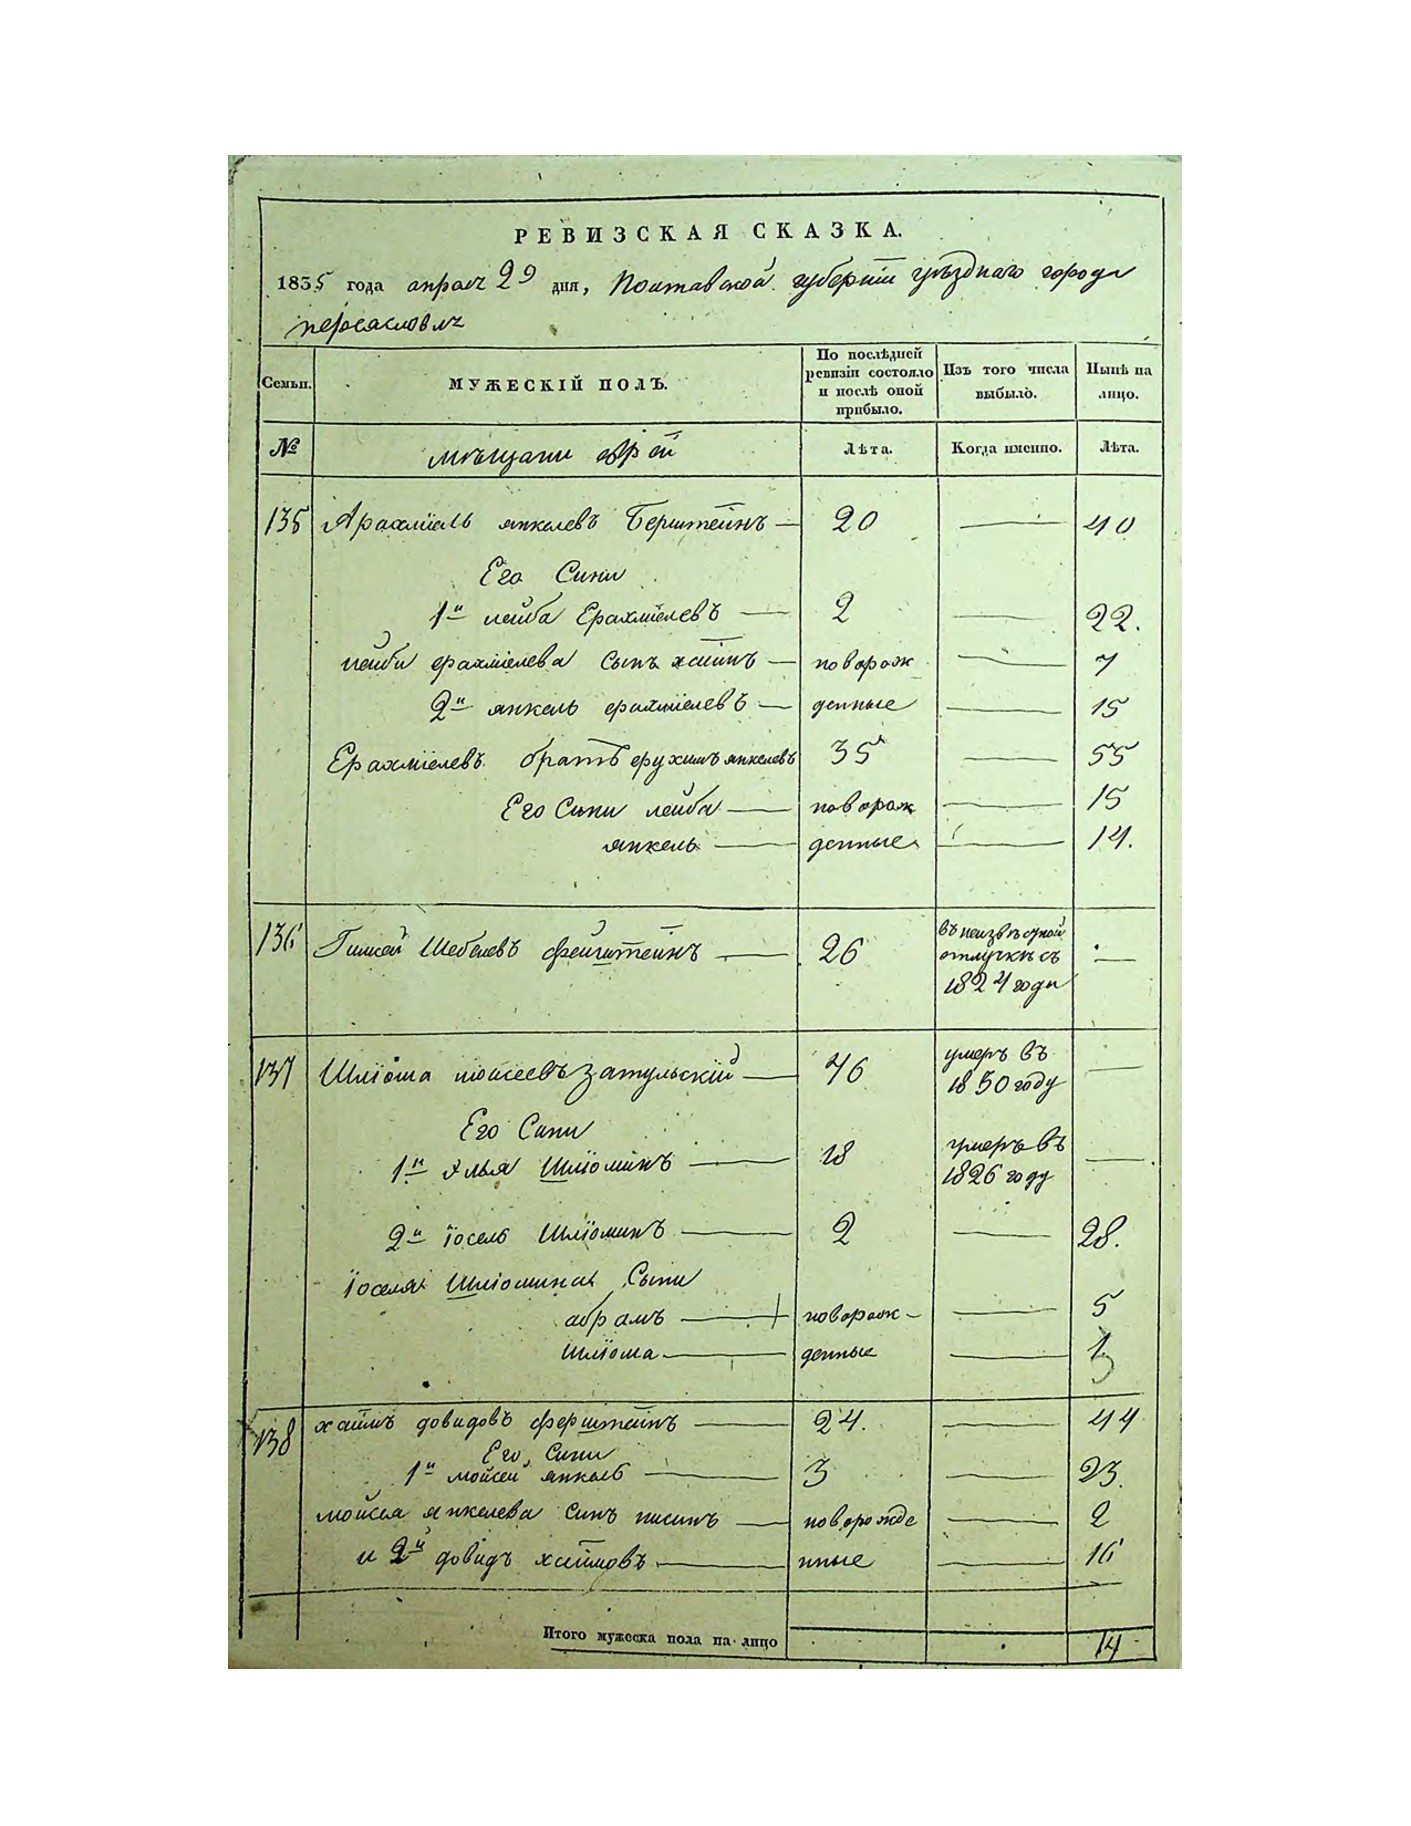 РЕВИЗСКАЯ СКАЗКА.
1835 года апреля 29 дня, Полтавской губернїи уѣзднаго города
переяславля
Семьи. МУЖЕСКІЙ ПОЛЪ. По послѣдней ревизіи состояло и послѣ оной прибыло. Изъ того числа выбыло. Нынѣ на лицо.
№ мѣщани еврей Лѣта. Когда именно. Лѣта.
135 Арахмїель янкелевъ Берштейнъ — 20 — 40
Его Сини
1й лейба Ерахмїелевъ — 2 — 22.
лейби ерахмїелева Сынъ хаимъ — новорож — 7
2й янкель ерахмїелевъ — денные — 15
Ерахмїелевъ братъ ерухимъ янкелевъ 35 — 55
Его Сини лейба — новорож — 15
янкель — денные — 14.
136 Шебелевъ фейгштейнъ — 26 въ неизвѣстной —
отлучкѣ съ
1824 годи
137 Шлїома моисеевъ Затульскїй — 46 умеръ въ —
1830 году
Его Сини
1й Элья Шлїоминъ — 18 умеръ въ —
1826 году
2й їосель Шлїоминъ — 2 — 28.
їоселя Шлїомина Сыни
абрамъ — новорож- — 5
шлїома — денные — 1
138 хаимъ довидовъ ферштейнъ — 24. — 44
Его Сини
1й мойсей янкель — 3 — 23.
мойсея янкелева Синъ нисинъ — новорожде — 2
и 2й довидъ хаимовъ — нные — 16
Итого мужеска пола на лицо 14